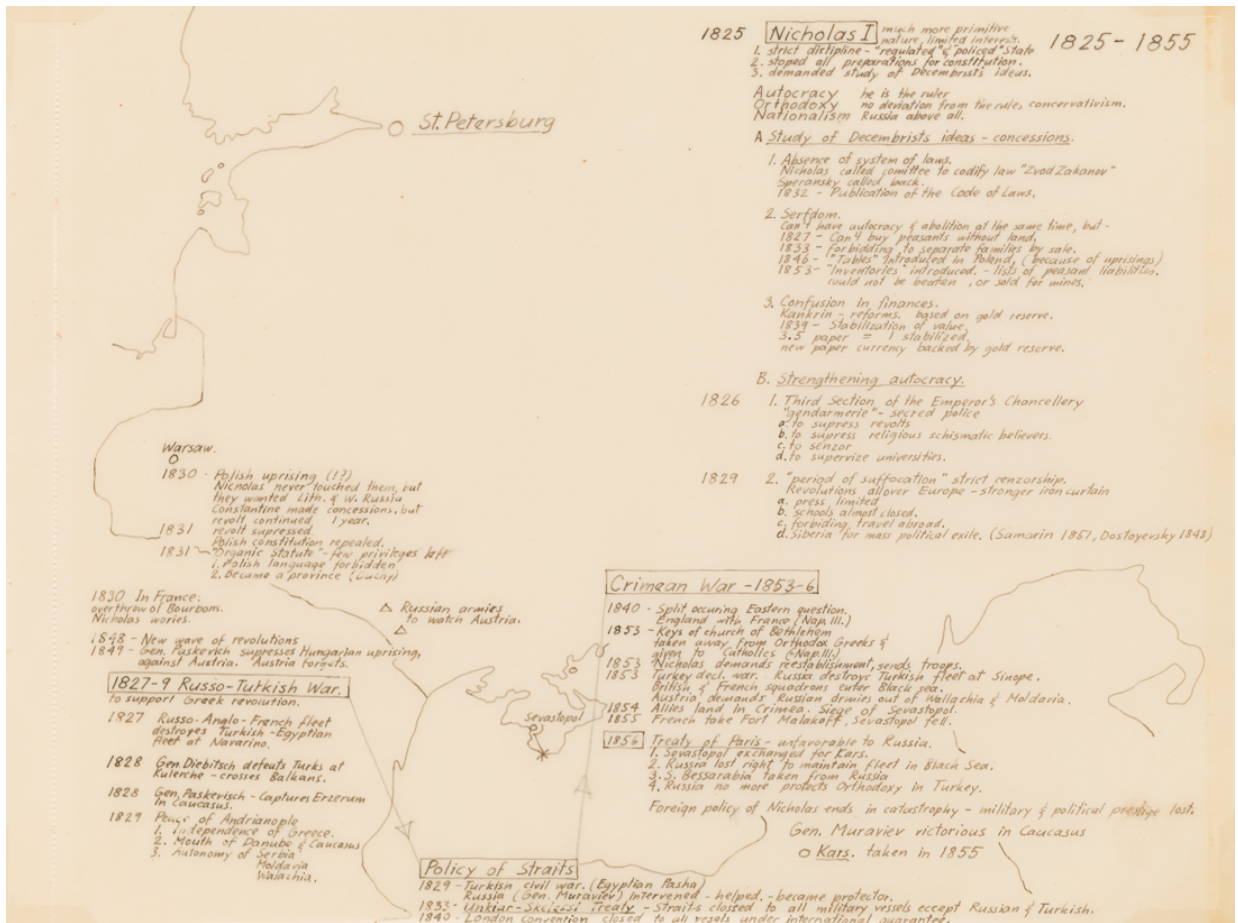 1825 Nicholas I much more primitive
nature, limited interests. 1825-1855
1. strict distipline - "regulated" & "policed" State
2. stoped all preparations for constitution.
3. demanded study of Decembrists ideas.
Autocracy he is the ruler
Orthodoxy no deviation from the rule, concervativism.
Nationalism Russia above all.
A Study of Decembrists ideas - concessions.
1. Absence of system of laws.
Nicholas called comittee to codify law "Zvod Zakanov"
Speransky called back.
1832 - Publication of the Code of Laws.
2. Serfdom.
Can't have autocracy & abolition at the same time, but -
1827 - Can't buy peasants without land,
1833 - forbidding to separate families by sale.
1846 - "Tables" introduced in Poland, (because of uprisings)
1853 - "Inventories" introduced. - lists of peasant liabilities.
could not be beaten, or sold for mines.
3. Confusion in finances.
Kankrin - reforms. based on gold reserve.
1839 - Stabilization of value,
3.5 paper = 1 stabilized.
new paper currency backed by gold reserve.
B. Strengthening autocracy.
1826 1. Third Section of the Emperor's Chancellery
"gendarmerie" - secred police
a. to supress revolts
b. to supress religious schismatic believers.
c. to senzor
d. to supervize universities.
1829 2. "period of suffocation" strict cenzorship.
Revolutions allover Europe - stronger iron curtain
a. press limited
b. schools almost closed.
c. forbiding travel abroad.
d. Siberia for mass political exile. (Samarin 1851, Dostoyevsky 1843)
St. Petersburg
Warsaw.
1830 - Polish uprising (!?)
Nicholas never touched them, but
they wanted Lith. & W. Russia
Constantine made concessions, but
revolt continued 1 year.
1831 revolt supressed.
Polish constitution repealed.
1831 - "Organic Statute" - few privileges left
1. Polish language forbidden
2. Became a province (Duchy)
1830 In France:
overthrow of Bourbom.
Nicholas wories.
1848 - New wave of revolutions
1849 - Gen. Paskevich supresses Hungarian uprising,
against Austria. Austria forgets.
Russian armies
to watch Austria.
1827-9 Russo-Turkish War.
to support Greek revolution.
1827 Russo-Anglo-French fleet
destroyes Turkish-Egyptian
fleet at Navarino.
1828 Gen. Diebitsch defeats Turks at
Kulerche - crosses Balkans.
1828 Gen. Paskevisch - Captures Erzerum
in Caucasus.
1829 Peace of Andrianople
1. Independence of Greece.
2. Mouth of Danube & Caucasus
3. Autonomy of Serbia
Moldavia
Walachia.
Sevastopol
Crimean War - 1853-6
1840 - Split occuring Eastern question,
England with France (Nap. III.)
1853 - Keys of church of Bethlehem
taken away from Orthodox Greeks &
given to Catholics (Nap. III.)
1853 Nicholas demands reestablishment, sends troops.
1853 Turkey decl. war. Russia destroys Turkish fleet at Sinope.
British & French squadrons enter Black sea.
Austria demands Russian armies out of Wallachia & Moldavia.
1854 Allies land in Crimea. Siege of Sevastopol.
1855 French take Fort Malakoff, Sevastopol fell.
1856 Treaty of Paris - unfavorable to Russia.
1. Sevastopol exchanged for Kars.
2. Russia lost right to maintain fleet in Black Sea.
3. S. Bessarabia taken from Russia
4. Russia no more protects Orthodoxy in Turkey.
Foreign policy of Nicholas ends in catastrophy - military & political prestige lost.
Gen. Muraviev victorious in Caucasus
Kars. taken in 1855
Policy of Straits
1829 - Turkish civil war. (Egyptian Pasha)
Russia (Gen. Muraviev) intervened - helped. - became protector.
1833 - Unkiar-Skelessi Treaty - Straits closed to all military vessels except Russian & Turkish.
1840 - London Convention closed to all vesels under international guarantee.